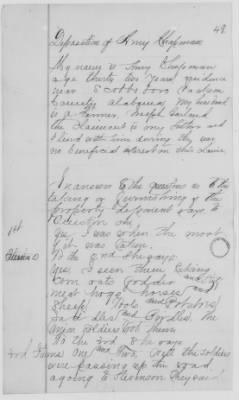 48
Deposition of Amy Chapman
My name is Amy Chapman
age thirty two Years residence
near Scottsboro Jackson
County Alabama My husband
is a Farmer. Joseph
the Claimant is my father and
I lived with him during the war
no beneficial interest in this Claim
In answer to the question as to the
taking or furnishing of the
property deponent says to
Question
1st Yes I was when the most
of it was taken.
To the 2nd She says
Yes I seen them taking
Corn oats fodder and
meat hogs horse and
Sheep Tools and Potatoes
Saddles and Bridles, the
Union Soldiers took them
To the 3rd She says
3rd One and Two, with the Soldiers
were passing up the road
a going to Stevenson they said